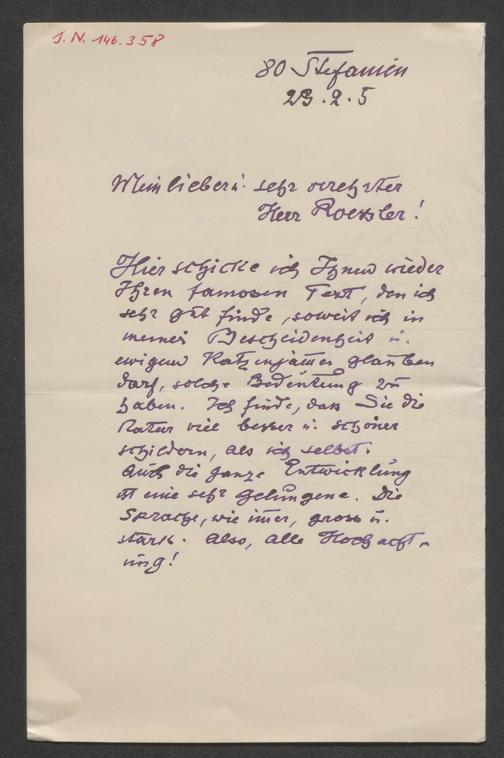 J. N. 146.358
80 Stefanien
23.2.5
Mein lieber u. sehr verehrter
Herr Roessler!
Hier schicke ich Ihnen wieder
Ihren famosen Text, den ich
sehr gut finde, soweit ich in
meiner Bescheidenheit u.
ewigen Katzenjammer glauben
darf, solche Bedeutung zu
haben. Ich finde, dass Sie die
Natur viel besser u. schöner
schildern, als ich selbst.
Auch die ganze Entwicklung
ist eine sehr gelungene. Die
Sprache, wie immer, gross u.
stark. Also, alle Hochacht-
ung!